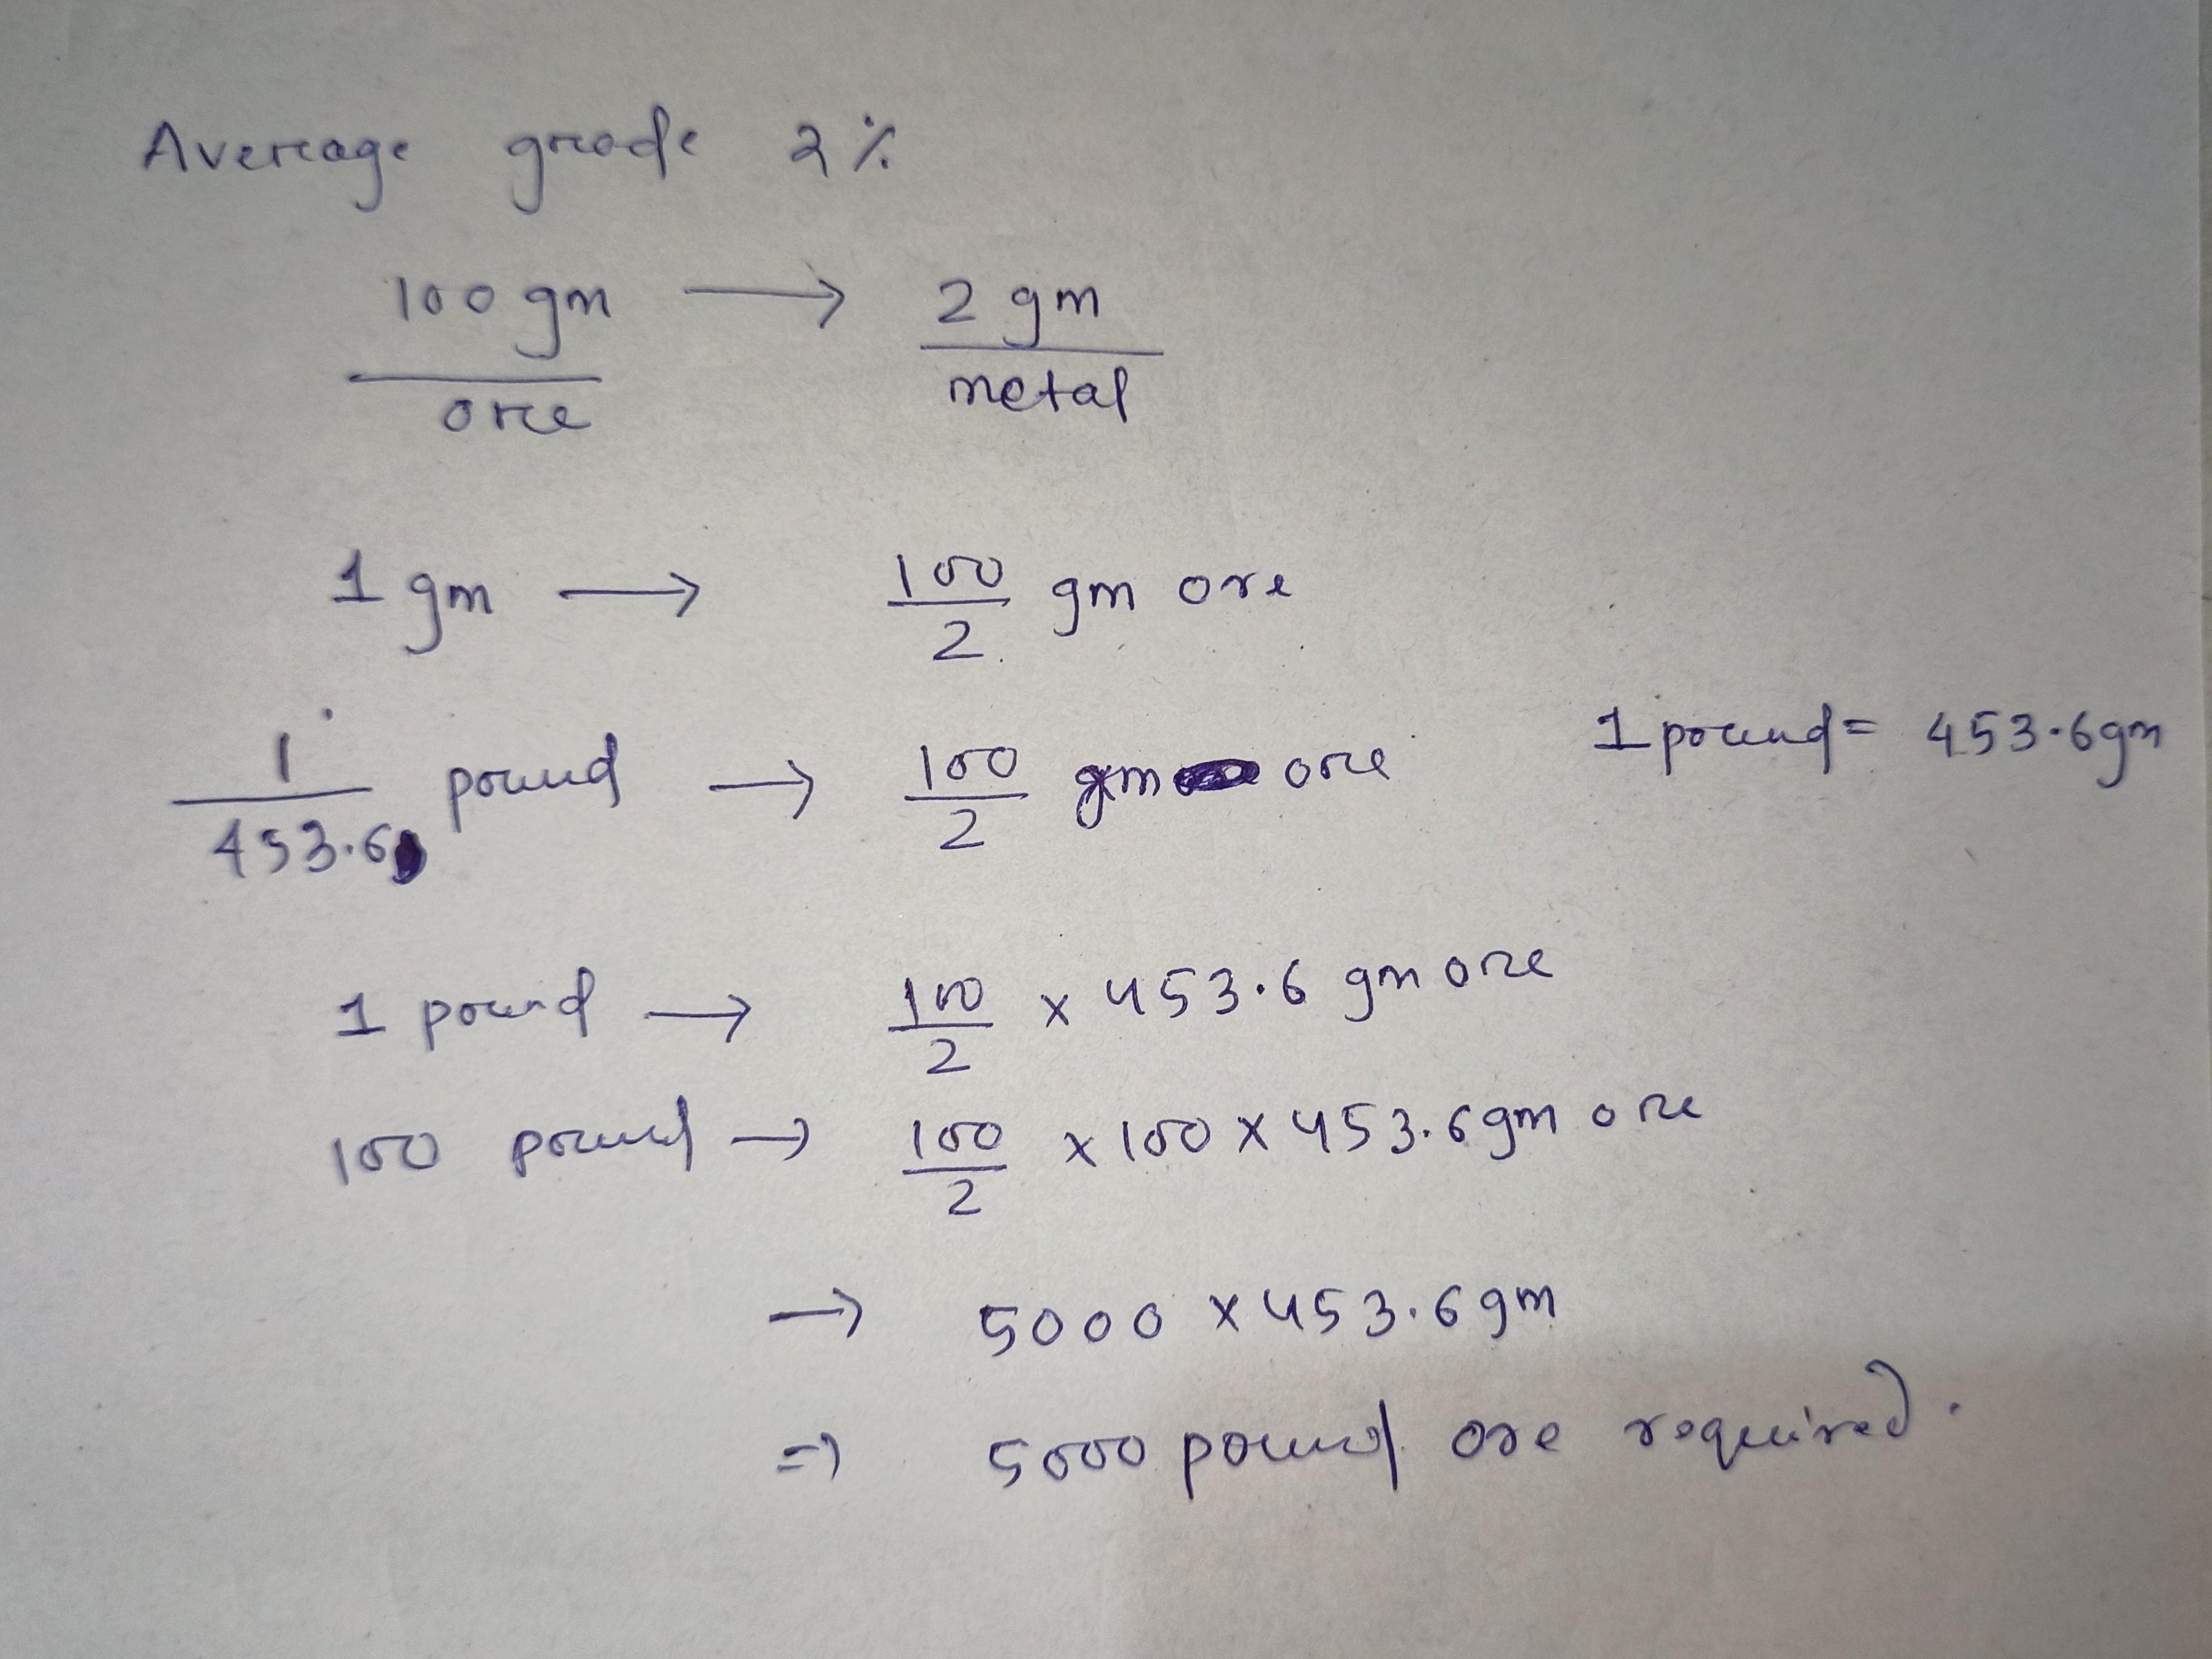 Average grade 2%
100 gm → 2 gm
ore metal
1 gm → 100/2 gm ore
1/453.6 pound → 100/2 gm ore 1 pound = 453.6 gm
1 pound → 100/2 x 453.6 gm ore
100 pound → 100/2 x 100 x 453.6 gm ore
→ 5000 x 453.6 gm
⇒ 5000 pound ore required.